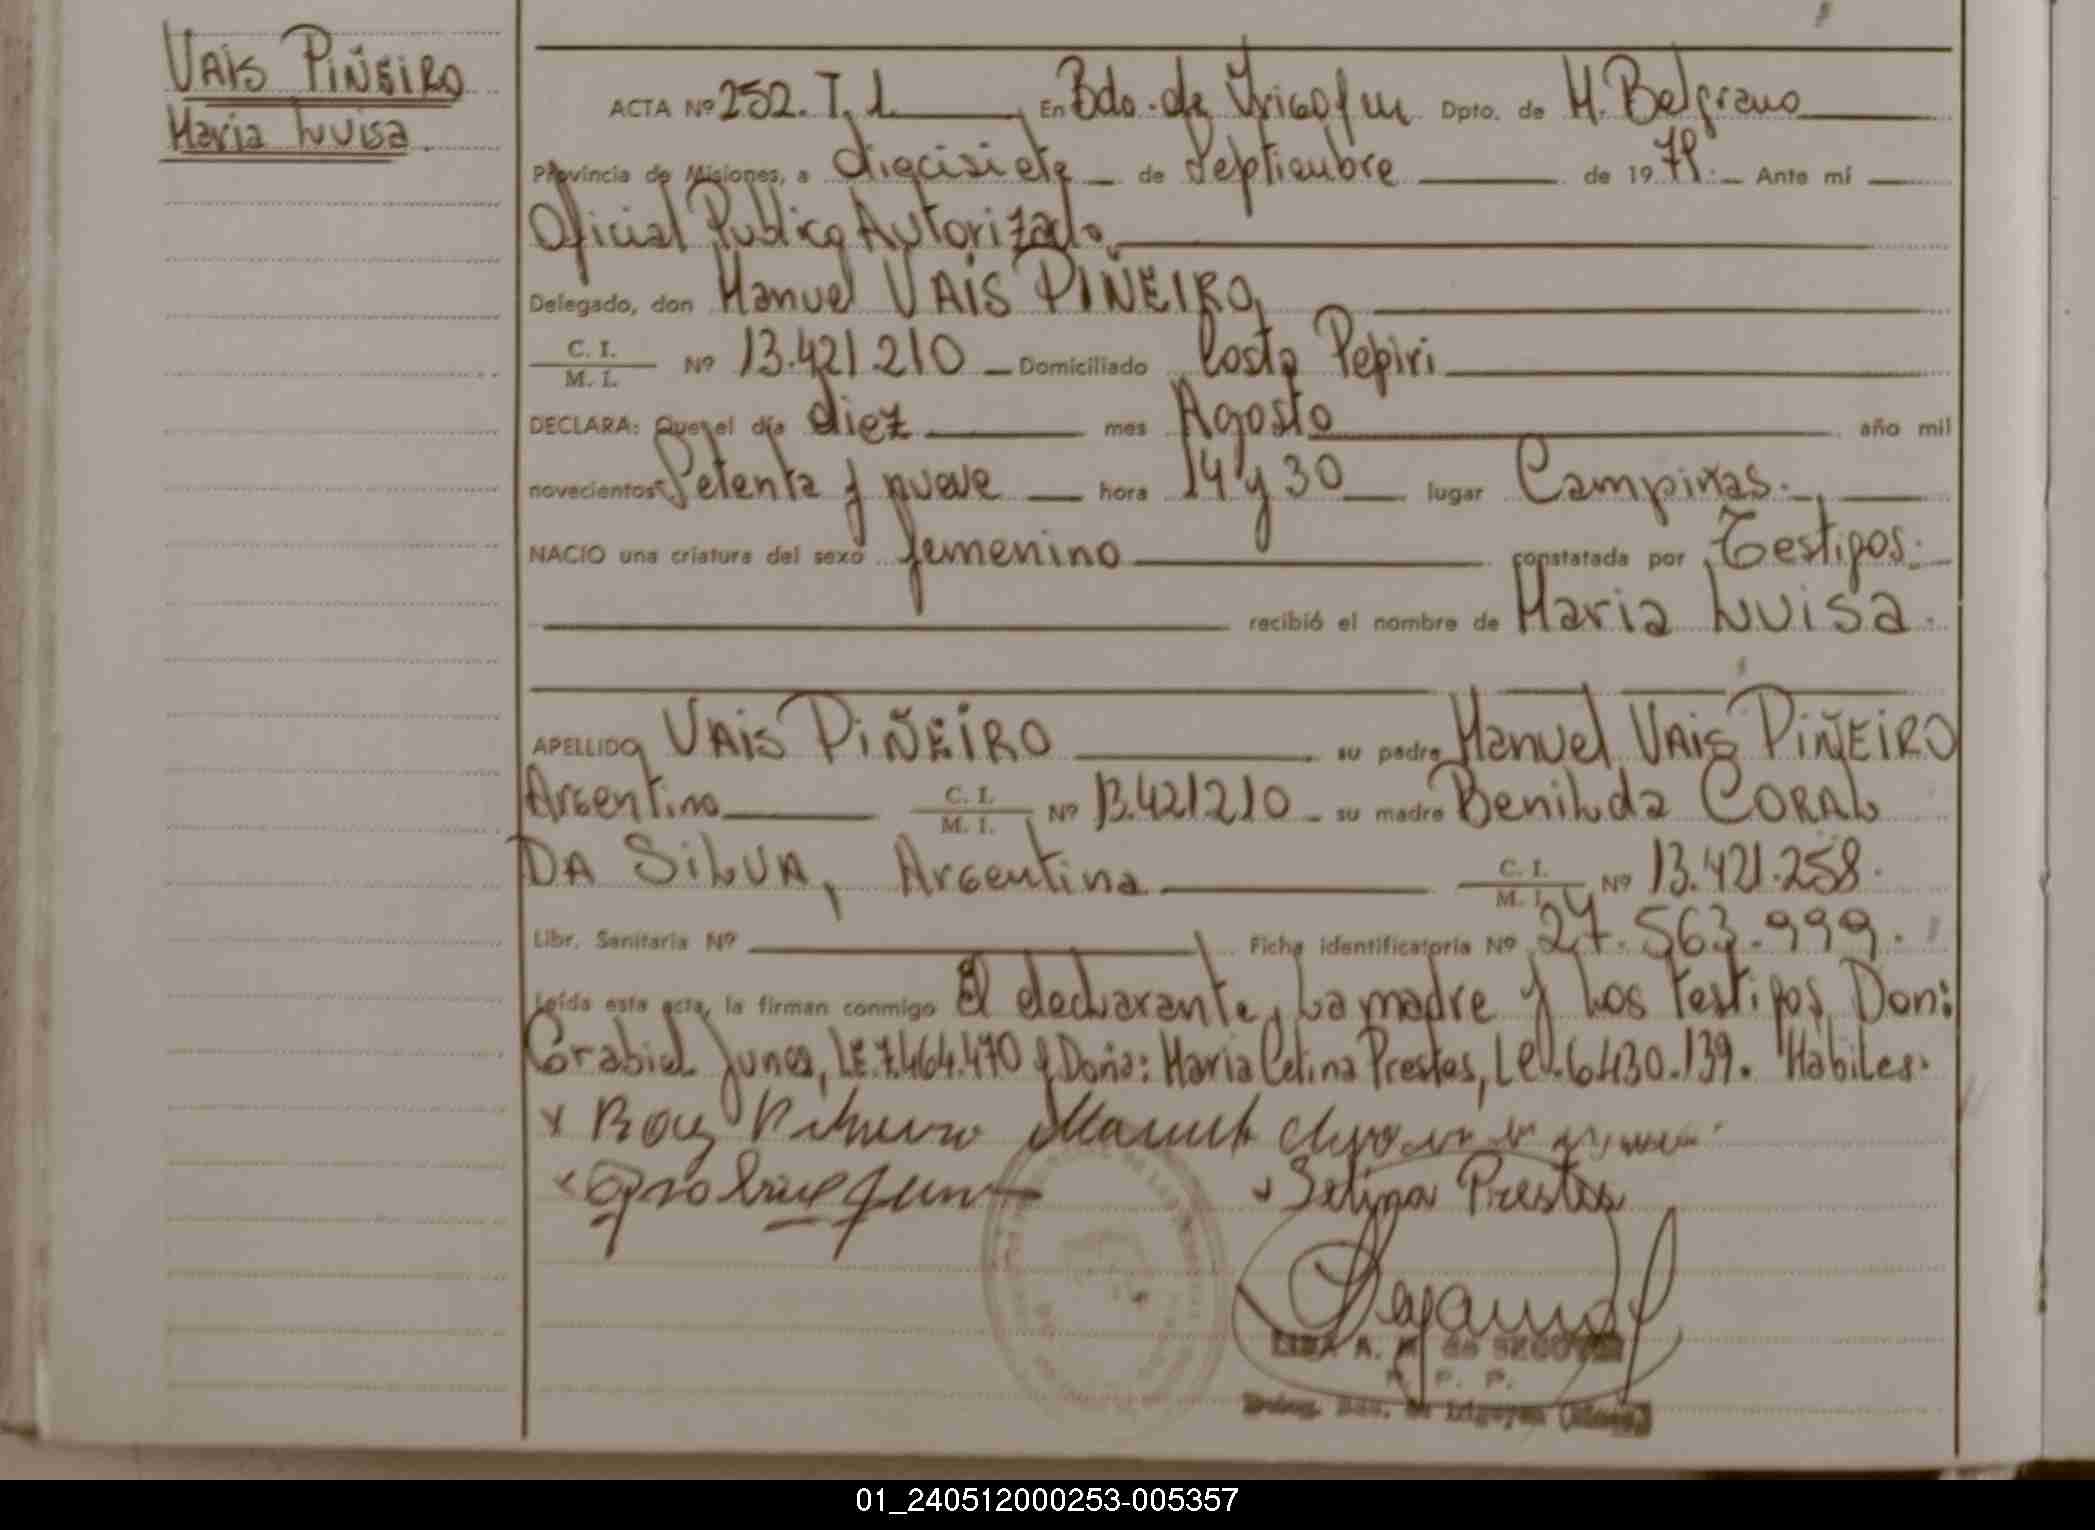 VAIS PIÑEIRO
Maria Luisa.
ACTA Nº 252. T. 1. En Bdo. de Yrigoyen Dpto. de M. Belgrano
Provincia de Misiones, a diecisiete de Septiembre de 1979. Ante mí
Oficial Publico Autorizado.
Delegado, don Manuel VAIS PIÑEIRO,
C. I.
M. I. Nº 13.421.210 Domiciliado Costa Pepiri
DECLARA: Que el día diez mes Agosto año mil
novecientos Setenta y nueve hora 14 y 30 lugar Campinas.
NACIO una criatura del sexo femenino constatada por Testigos.
recibió el nombre de Maria Luisa.
APELLIDO VAIS PIÑEIRO su padre Manuel VAIS PIÑEIRO
Argentino C. I.
M. I. Nº 13.421.210 su madre Benilda CORAL
DA SILVA, Argentina C. I.
M. I. Nº 13.421.258.
Libr. Sanitaria Nº Ficha identificatoria Nº 27.563.999.
Leída esta acta, la firman conmigo El declarante, La madre y Los testigos, Don:
Grabiel Junes, LE.7.464.470 y Doña: Maria Celina Prestes, LC.6430.139. Habiles.
x
x
Selina Prestes
A. M. de SEGOVIA
P. P.
Bdo. de Irigoyen (Mnes.)
01_240512000253-005357